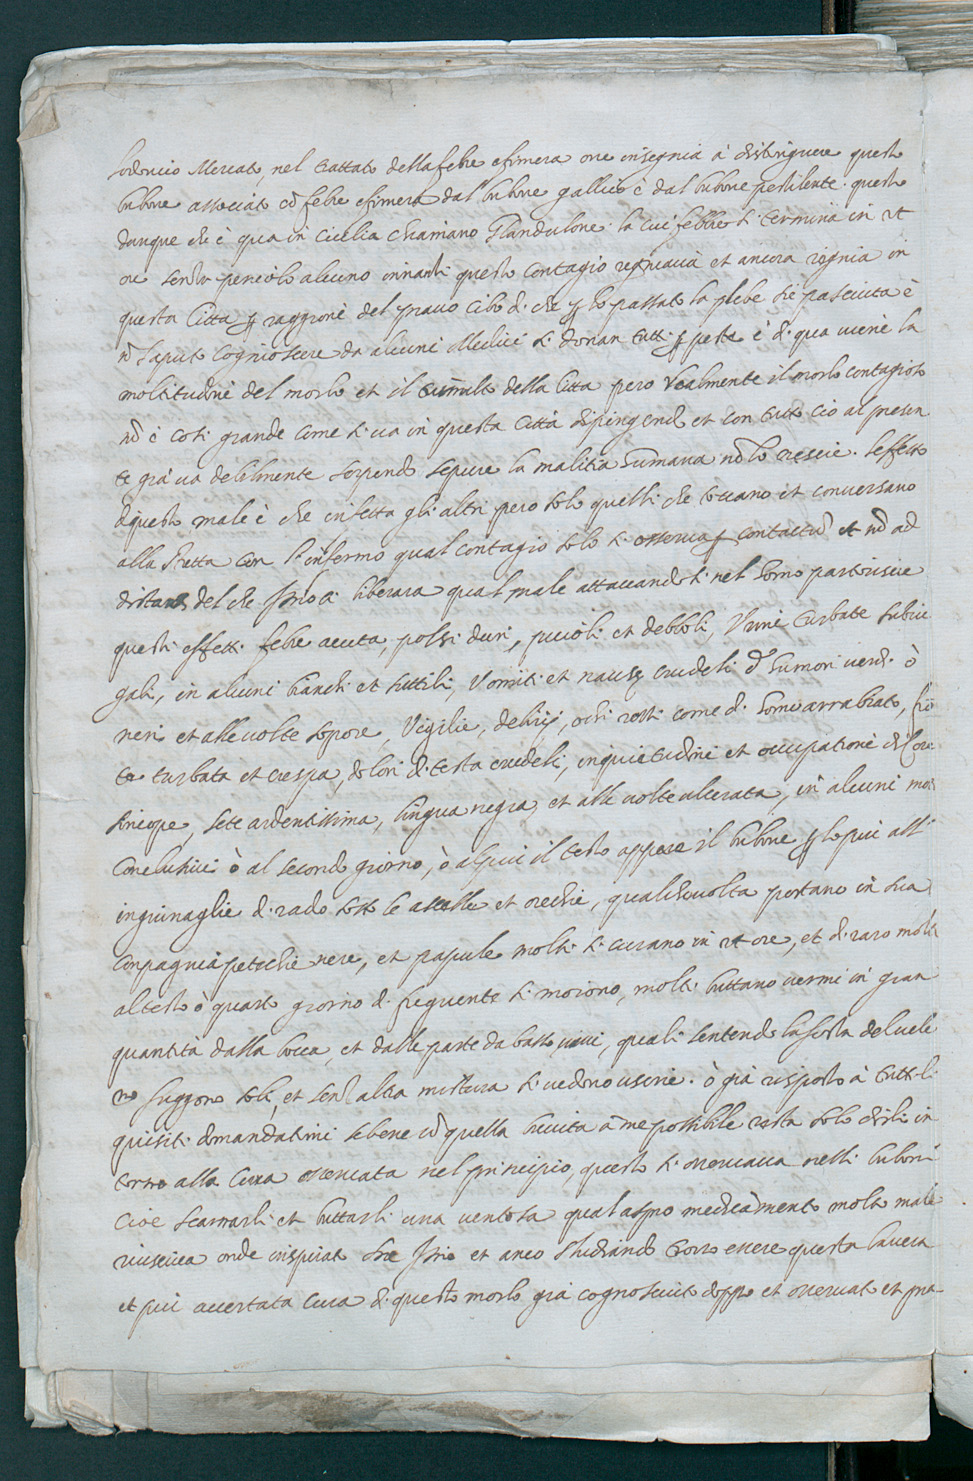 lodovico Mercato, nel trattato della febre efimera ove insegnia à distinguere questo
bubone associato co febre efimera dal bubone gallico è dal bubone pestilente. questo
dunque che è qua in Cicilia chamano Glandulone la cui febbre si termina in 24
ore senza pericolo alcuno innanti questo contagio regniava et ancora regnia in
questa Città raggione del pravo cibo di che lo passato la plebe s'è pasciuta è
no saputo Cognioscere da alcuni Medici si donan tutti peste è di qua viene la
moltitudine del morbo et il tumulto della Citta pero realmente il morbo contagioso
no è così grande come si va in questa Città dispingendo et con tutto cio al presen
te già va debilmente serpendo sepure la malitia humana no lo riescie. l'effetto
di questo male è che infetta gli altri pero solo quelli che toccano et conversano
alla stretta con l'infermo qual contagio solo si osserva contactu et no ad
distans del che Iddio ci liberara qual male attaccandosi nel homo partoriscie
questi effetti febre acuta, polsi duri, piccioli et debboli, Urine turbate subiu
gali, in alcuni bianchi et suttili, Vomiti et nause crudeli di humori verdi ò
neri et alle volte sopore, Vigilie, delirij, ochi rossi come di homo arrabiato, fron
te turbata et crespa, dolori di testa crudeli, inquietudini et occupatione di Core
sincope, sete ardentissima, lingua negra, et alle volte ulcerata, in alcuni moti
Convulsivi ò al secondo giorno, ò al piu il terzo appare il bubone lo piu all'
inguinaglie di rado sotto le ascelle et orechie, qualchevolta portano in sua
Conpagnia petechie nere, et papule molti si curano in 24 ore, et di raro molti
al terzo ò quarto giorno di frequente si moiono, molti buttano vermi in gran
quantità dalla bocca, et dalle parte da basso, vivi, quali sentendo la forza del vele
no fuggono soli, et senz'altra mistura si vedono uscire. ò già risposto à tutt li
quisiti domandatimi sebene co quella brevita à me possibile resta solo dirli in
torno alla Cura osservata nel principio, questo si osservava nelli buboni
Cioè scarnarli et buttarli una ventosa qual aspro medicamento molto male
riusciva onde inspirato da Iddio et anco studiando trovo essere questa la vera
et piu accertata Cura di questo morbo già cognosciuto doppo et osservato et pra-